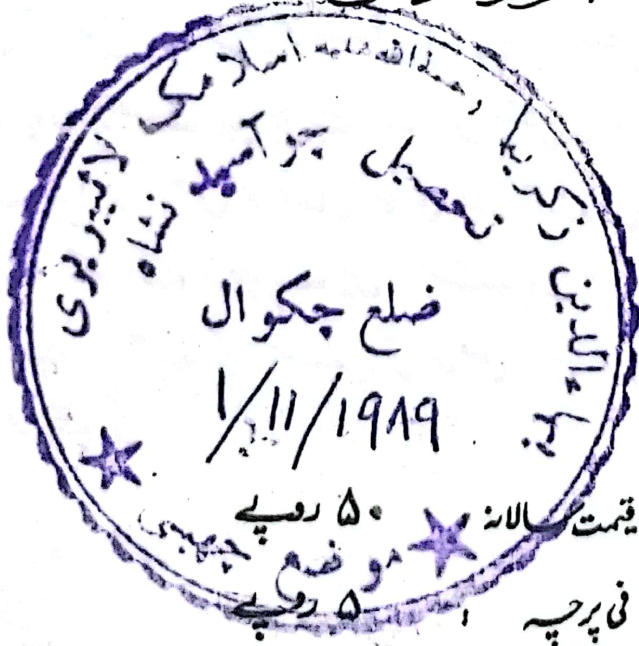 بہاءالدین زکریا رحمۃ اللہ علیہ اسلامی لائبریری
تحصیل چوآسیدنشاہ
ضلع چکوال
1/11/1989
قیمت سالانہ ۵۰ روپے
موضع چھمبی
فی پرچہ ۵ روپے